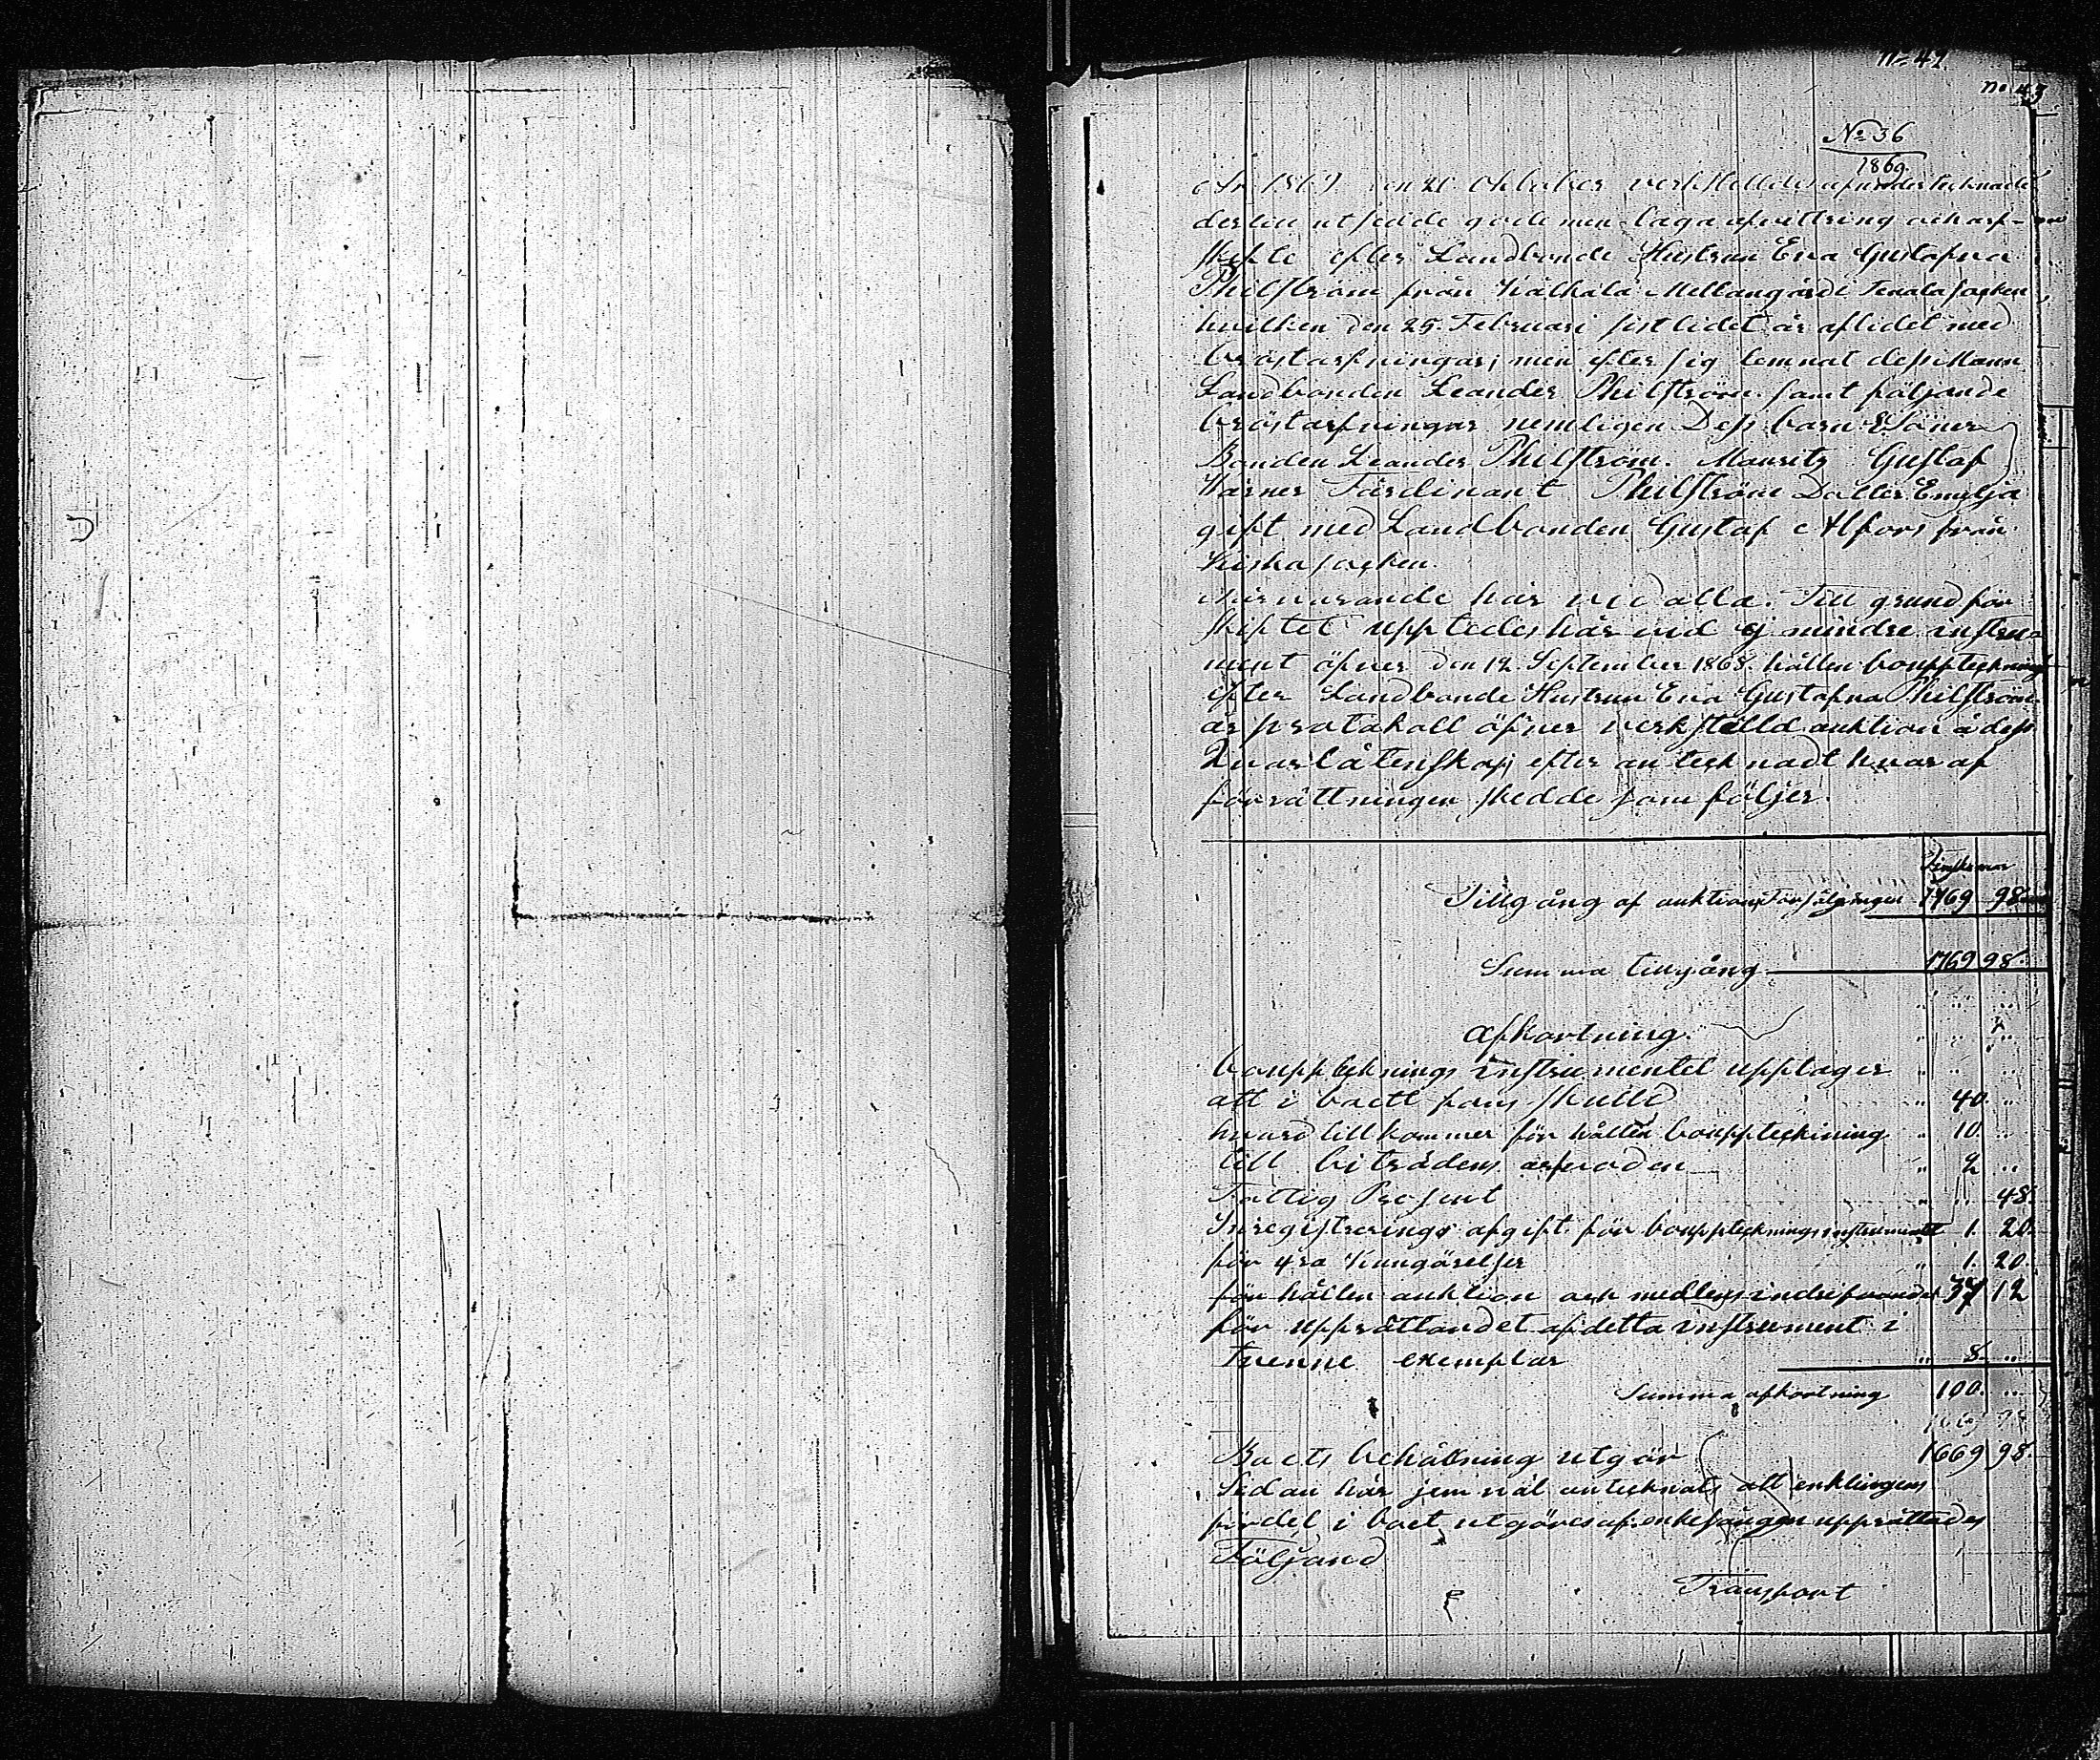 No 41
No 43
No 36
1869.
År 1869 den 20 Oktober verkstäldes af undertecknade
dertill utsedde gode men laga afvittring ock arf-
skifte efter Landbonde Hustrun Eva Gustafva
Philström från Kålkala Mellangård i Tenala socken
hvilken den 25. Februari sistlidet år aflidet med
bröstarfvingar, men efter sig lemnat dess Mann
Landbonden Leander Philström samt följande
bröstarfvingar nemligen Dess barn Söner
Bonden Leander Philström. Mauritz Gustaf
Värner Färdinant Philström Dotter Emilja
gift med Landbonden Gustaf Alfors från
Kiska socken.
Närvarande här vid alla. Till grund för
skiftet upptedes här vid ej mindre instru-
ment öfver den 12. September 1868. hållen bouppteckning
efter Landbonde Hustrun Eva Gustafva Philström
är protokoll öfver verkställd auktion å dess
Qvarlåtenskap, efter antecknadt hvaraf
förrättningen skedde som följer.
Tillgång af auktions Försäljningen 1769 98
Summa tillgång 1769 98.
Afkortning.
bouppteknings instrumentet upptager
att i boett fans skulld " 40. "
hvard tillkommer för hållen bouppteckining " 10. "
till biträdens arfvoden " 2 "
Fattig Prosent " " 48.
Inregistrerings afgift för bouppteknings instrumentet 1. 20.
för 4ra Kungörelser " 1. 20.
för hållen auktion ock medlens indrifvandet 37 12
för upprättandet af detta instrument i
tvenne exemplar " 8. "
Summa afkortning 100. "
1669 98
Boets behållning utgör 1669 98.
Sedan här jemväl antecknats att enklingens
fördel i boet utgöres af enkesängen upprättades
Följand
Transport